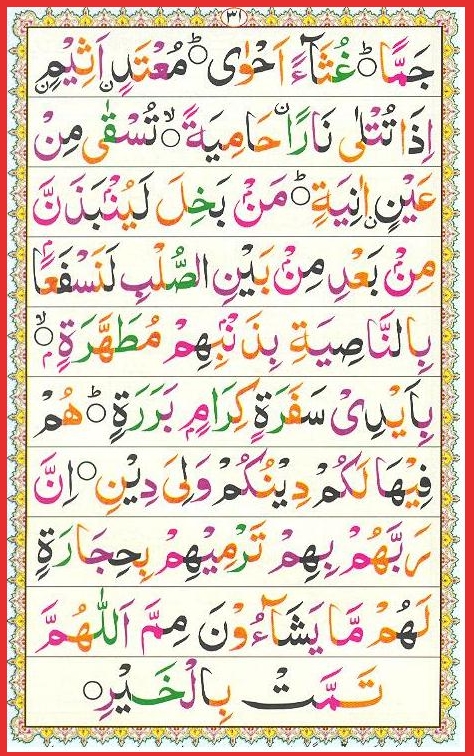 ٣١
جَمًّا ؕ غُثَآءً اَحْوٰى ؕ مُعْتَدٍ اَثِيْمٍ
اِذَا تُتْلٰى نَارًا حَامِيَةً ۙ تُسْقٰى مِنْ
عَيْنٍ اٰنِيَةٍ ؕ مَنْۢ بَخِلَ لَيُنْۢبَذَنَّ
مِنْۢ بَعْدِ مِنْۢ بَيْنِ الصُّلْبِ لَنَسْفَعًۢا
بِالنَّاصِيَةِ بِذَنْۢبِهِمْ مُطَهَّرَةٍۭ ۙ
بِاَيْدِىْ سَفَرَةٍ كِرَامٍۭ بَرَرَةٍ ؕ هُمْ
فِيْهَا لَكُمْ دِيْنُكُمْ وَلِىَ دِيْنِ ۟ اِنَّ
رَبَّهُمْ بِهِمْ تَرْمِيْهِمْ بِحِجَارَةٍ
لَهُمْ مَّا يَشَآءُوْنَ مِمَّ اَللّٰهُمَّ
تَمَّتْ بِالْخَيْرِ ۟